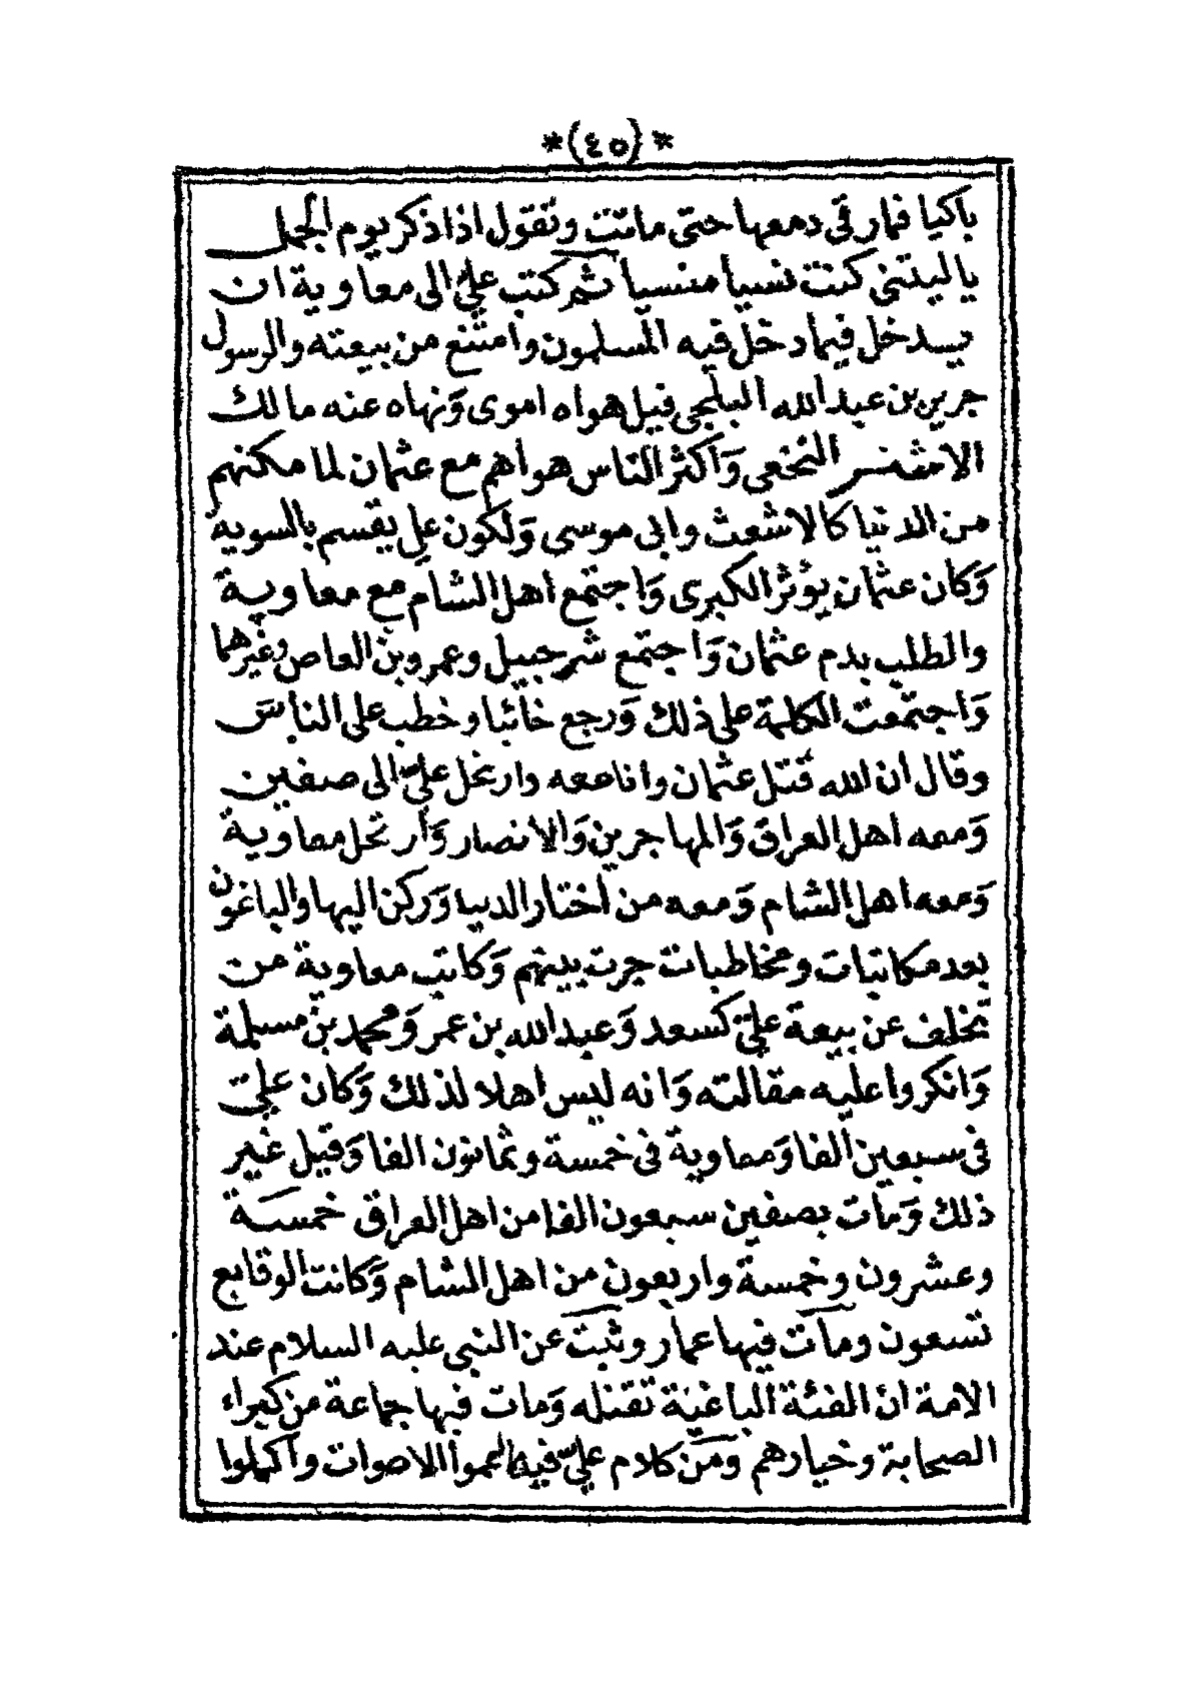 *(٤٥)*
باكيا فمار قى دمعها حتى ماتت وتقول اذا ذكر يوم الجمل
ياليتنى كنت نسيا منسيا ثم كتب علىّ الى معاوية ان
يدخل فيما دخل فيه المسلمون وامتنع من بيعته والرسول
جرير بن عبدالله البجلى قيل هواه اموى وَنهاه عنه مالك
الاشتر النخعى وَاكثر الناس هواهم مع عثمان لما مكنهم
من الدنيا كالاشعث وابى موسى وَلكون على يقسم بالسوية
وَكان عثمان يؤثر الكبرى وَاجتمع اهل الشام مع معاوية
والطلب بدم عثمان وَاجتمع شرجبيل وعمرو بن العاص وغيرهما
وَاجتمعت الكلمة على ذلك وَرجع خائبا وخطب على الناس
وقال ان الله قتل عثمان وانا معه وارتحل علىّ الى صفين
وَمعه اهل العراق وَالمهاجرين وَالانصار وَأرتحل معاوية
وَمعه اهل الشام وَمعه من اختار الدنيا وَركن اليها والباغون
بعد مكاتبات ومخاطبات جرت بينهم وَكاتب معاوية من
تخلف عن بيعة علىّ كسعد وَعبدالله بن عمر وَمحمد بن مسلمة
وَانكروا عليه مقالته وَانه ليس اهلا لذلك وَكان علىّ
فى سبعين الفا وَمعاوية فى خمسة وثمانون الفا وَقيل غير
ذلك وَمات بصفين سبعون الفا من اهل العراق خمسة
وعشرون وخمسة واربعون من اهل الشام وَكانت الوقايع
تسعون ومات فيها عمار وثبت عن النبى عليه السلام عند
الامة ان الفئة الباغية تقتله وَمات فيها جماعة من كبراء
الصحابة وخيارهم وَمن كلام علىّ فيها عموا الاصوات واكملوا